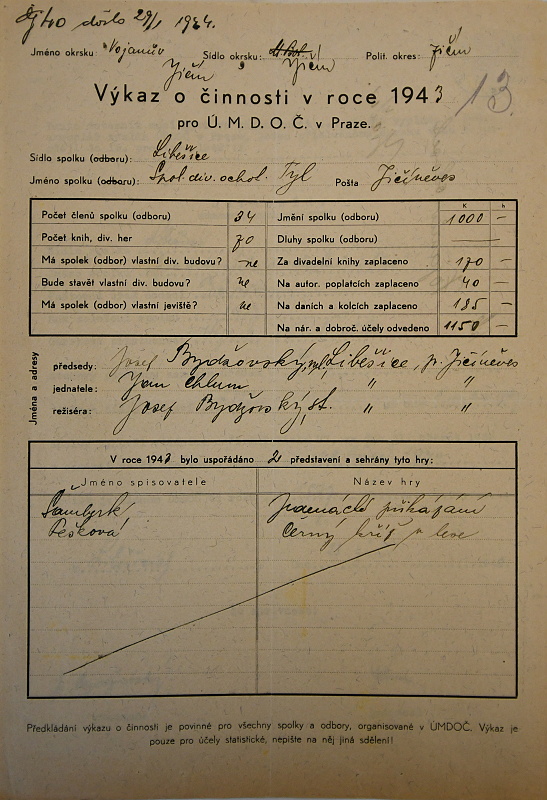 došlo 29/1 1944.
Jméno okrsku: Vojanův Sídlo okrsku: Jičín Polit. okres: Jičín
Jičín
Výkaz o činnosti v roce 1943
13.
pro Ú. M. D. O. Č. v Praze.
Sídlo spolku (odboru): Libešice
Jméno spolku (odboru): Spol. div. ochot. Tyl Pošta Jičíněves
K h
Počet členů spolku (odboru) 34 Jmění spolku (odboru) 1000 —
Počet knih, div. her 70 Dluhy spolku (odboru) —
Má spolek (odbor) vlastní div. budovu? ne Za divadelní knihy zaplaceno 170 —
Bude stavět vlastní div. budovu? ne Na autor. poplatcích zaplaceno 40 —
Má spolek (odbor) vlastní jeviště? ne Na daních a kolcích zaplaceno 185 —
Na nár. a dobroč. účely odvedeno 1150 —
Jména a adresy
předsedy: Josef Bydžovský, ml., Libešice, p. Jičíněves
jednatele: Jan Chlum " "
režiséra: Josef Bydžovský, st. " "
V roce 1943 bylo uspořádáno 2 představení a sehrány tyto hry:
Jméno spisovatele Název hry
Šamberk Jedenácté přikázání
Pešková Černý kříž v lese
Předkládání výkazu o činnosti je povinné pro všechny spolky a odbory, organisované v ÚMDOČ. Výkaz je
pouze pro účely statistické, nepište na něj jiná sdělení!